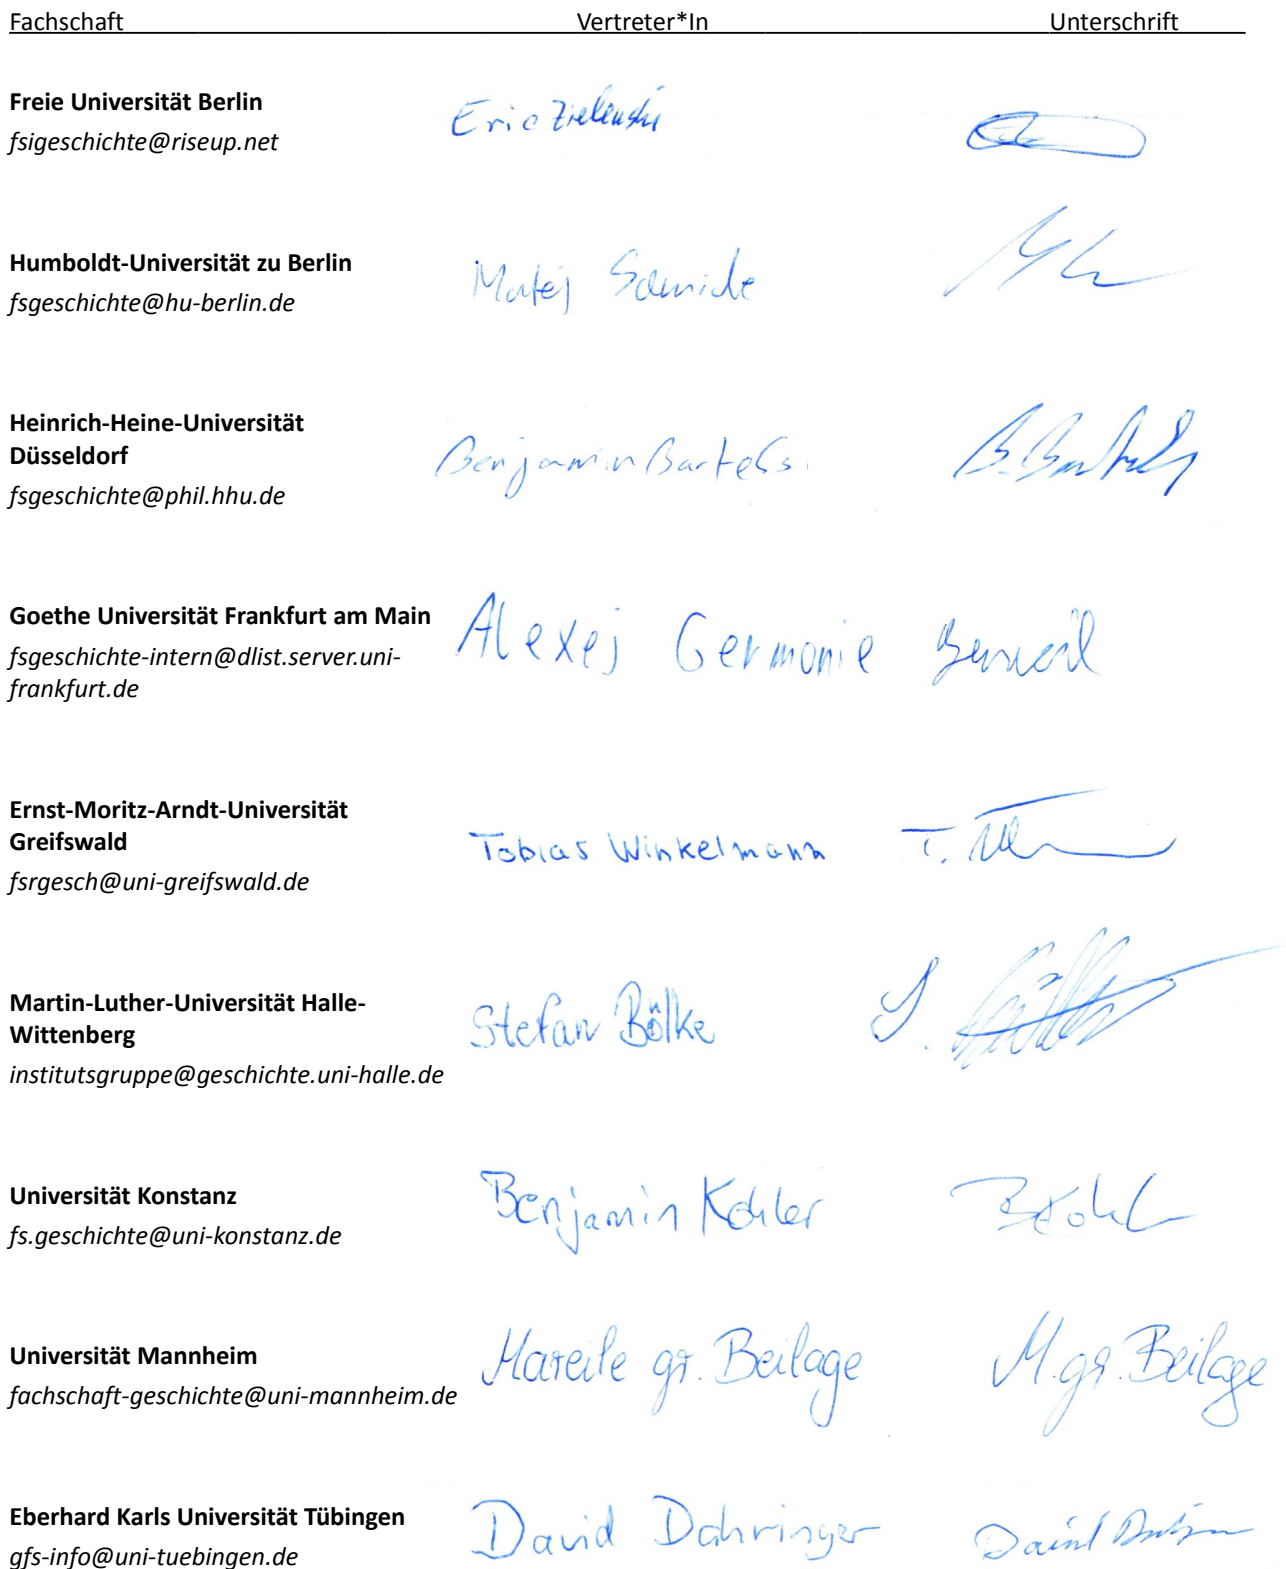 Fachschaft Vertreter*In Unterschrift
Freie Universität Berlin
fsigeschichte@riseup.net
Eric Zielenski
Humboldt-Universität zu Berlin
fsgeschichte@hu-berlin.de
Matej
Heinrich-Heine-Universität
Düsseldorf
fsgeschichte@phil.hhu.de
Benjamin Bartels B. Bartels
Goethe Universität Frankfurt am Main
fsgeschichte-intern@dlist.server.uni-
frankfurt.de
Alexej Germonie
Ernst-Moritz-Arndt-Universität
Greifswald
fsrgesch@uni-greifswald.de
Tobias Winkelmann T.
Martin-Luther-Universität Halle-
Wittenberg
institutsgruppe@geschichte.uni-halle.de
Stefan Bölke S.
Universität Konstanz
fs.geschichte@uni-konstanz.de
Benjamin Kohler
Universität Mannheim
fachschaft-geschichte@uni-mannheim.de
Mareile gr. Beilage M. gr. Beilage
Eberhard Karls Universität Tübingen
gfs-info@uni-tuebingen.de
David Dahringer David